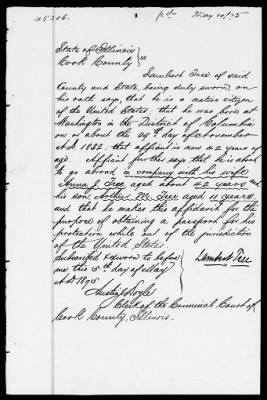 45206.
May 10/75
State of Illinois
Cook County } ss
Lambert Tree of said
County and State, being duly sworn on
his oath says, that he is a native citizen
of the United States; that he was born at
Washington in the District of Columbia
on or about the 29th day of November
A.D. 1832; that affiant is now 42 years of
age. Affiant further says that he is about
to go abroad in company with his wife
Anna J. Tree aged about 42 years and
his son Arthur M. Tree aged 11 years
and that he makes this affidavit for the
purpose of obtaining a passport for his
protection while out of the jurisdiction
of the United States.
Subscribed & sworn to before
me this 5th day of May
A.D. 1875
Lambert Tree
Austin J. Doyle
Clerk of the Criminal Court of
Cook County, Illinois.